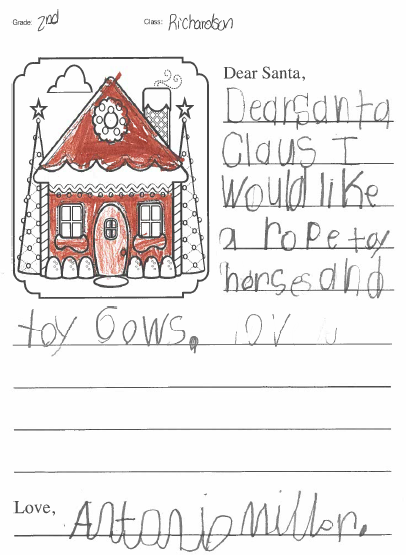 Grade: 2nd Class: Richardson
Dear Santa,
Dear santa
Claus I
would like
a rope toy
horses and
toy cows.
Love, Antonio Miller.